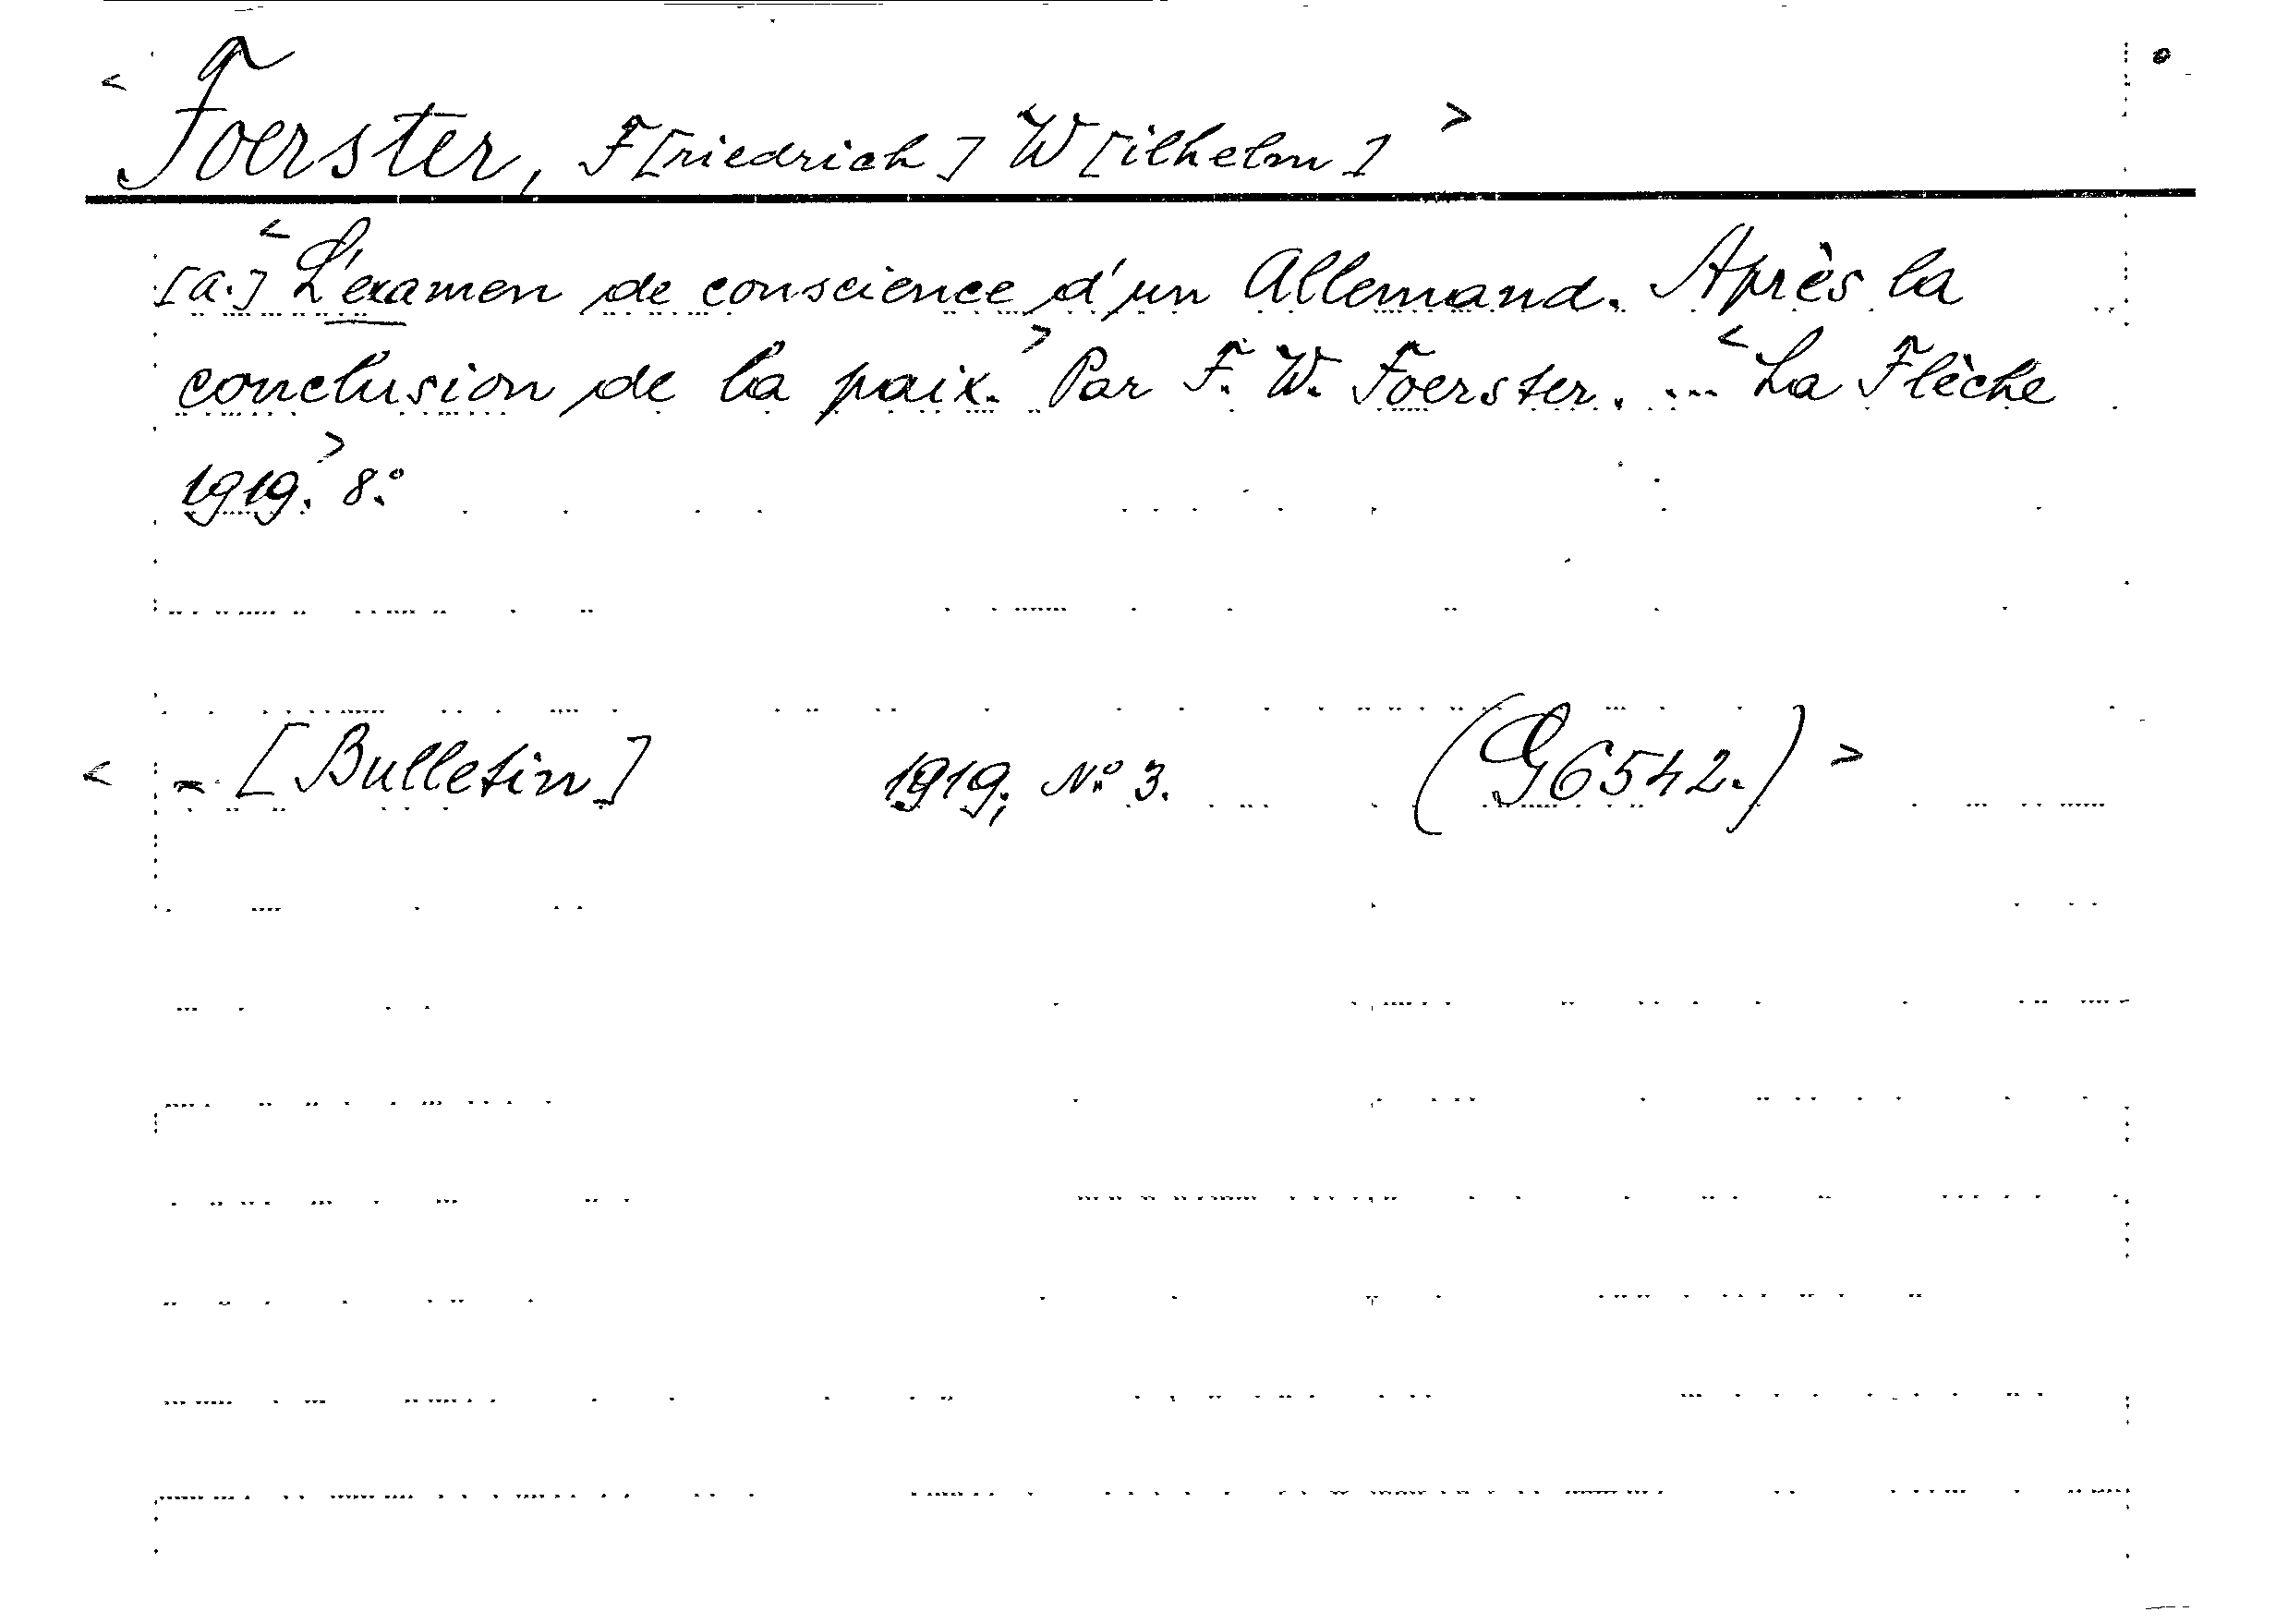 < Foerster, F[riedrich] W[ilhelm] >
[a.] < L'examen de conscience d'un Allemand. Après la
conclusion de la paix. > Par F. W. Foerster. ... < La Flèche
1919. > 8.°
< - [Bulletin] 1919, N.° 3. (G 6542.) >